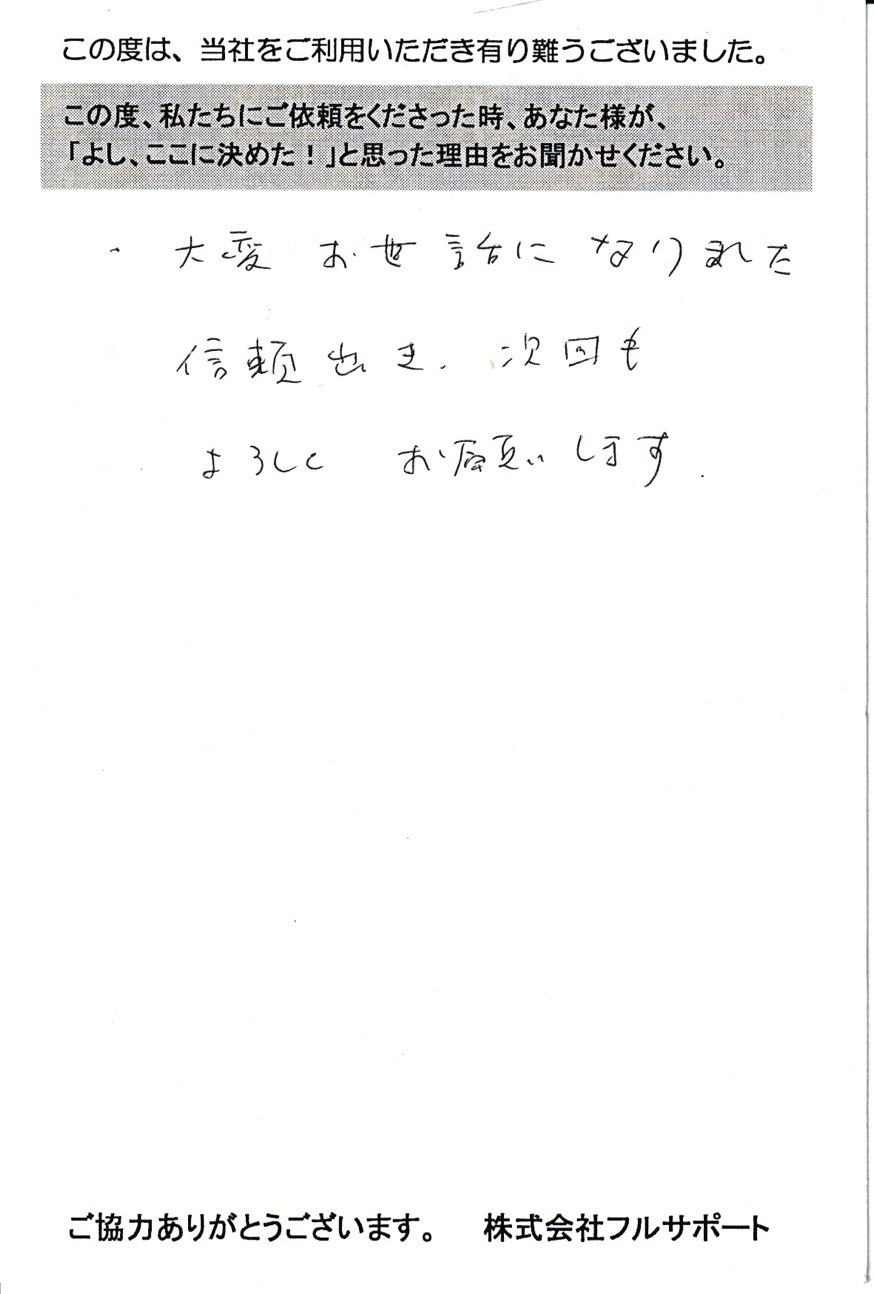 この度は、当社をご利用いただき有り難うございました。
この度、私たちにご依頼をくださった時、あなた様が、
「よし、ここに決めた！」と思った理由をお聞かせください。
・大変お世話になりました
信頼出き、次回も
よろしくお願いします.
ご協力ありがとうございます。 株式会社フルサポート